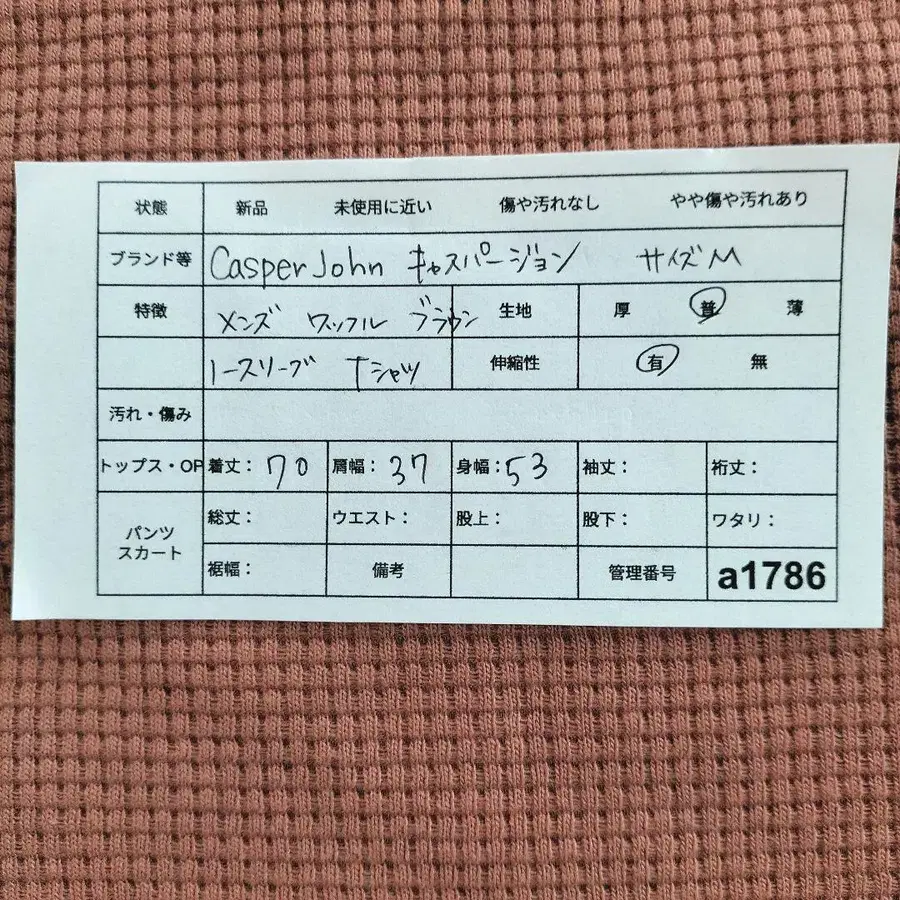 状態 新品 未使用に近い 傷や汚れなし やや傷や汚れあり
ブランド等 Casper John キャスパージョン サイズM
特徴 メンズ ワッフル ブラウン 生地 厚 普 薄
ノースリーブ Tシャツ 伸縮性 有 無
汚れ・傷み
トップス・OP 着丈： 70 肩幅： 37 身幅： 53 袖丈： 裄丈：
パンツ スカート 総丈： ウエスト： 股上： 股下： ワタリ：
裾幅： 備考 管理番号 a1786